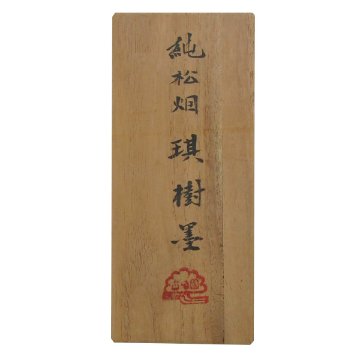 純松烟琪樹墨